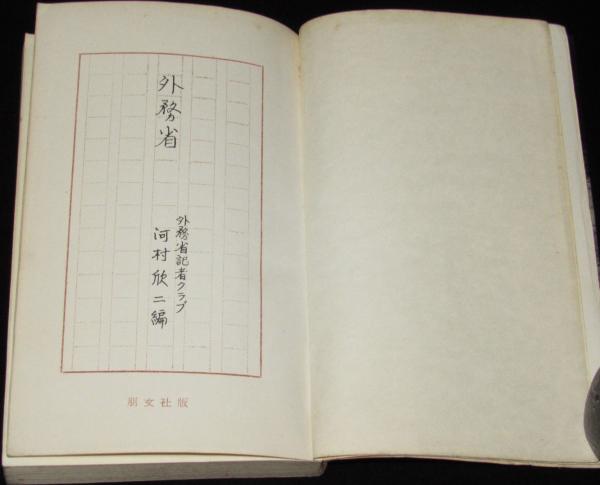 外務省
外務省記者クラブ
河村欣二編
朋文社版